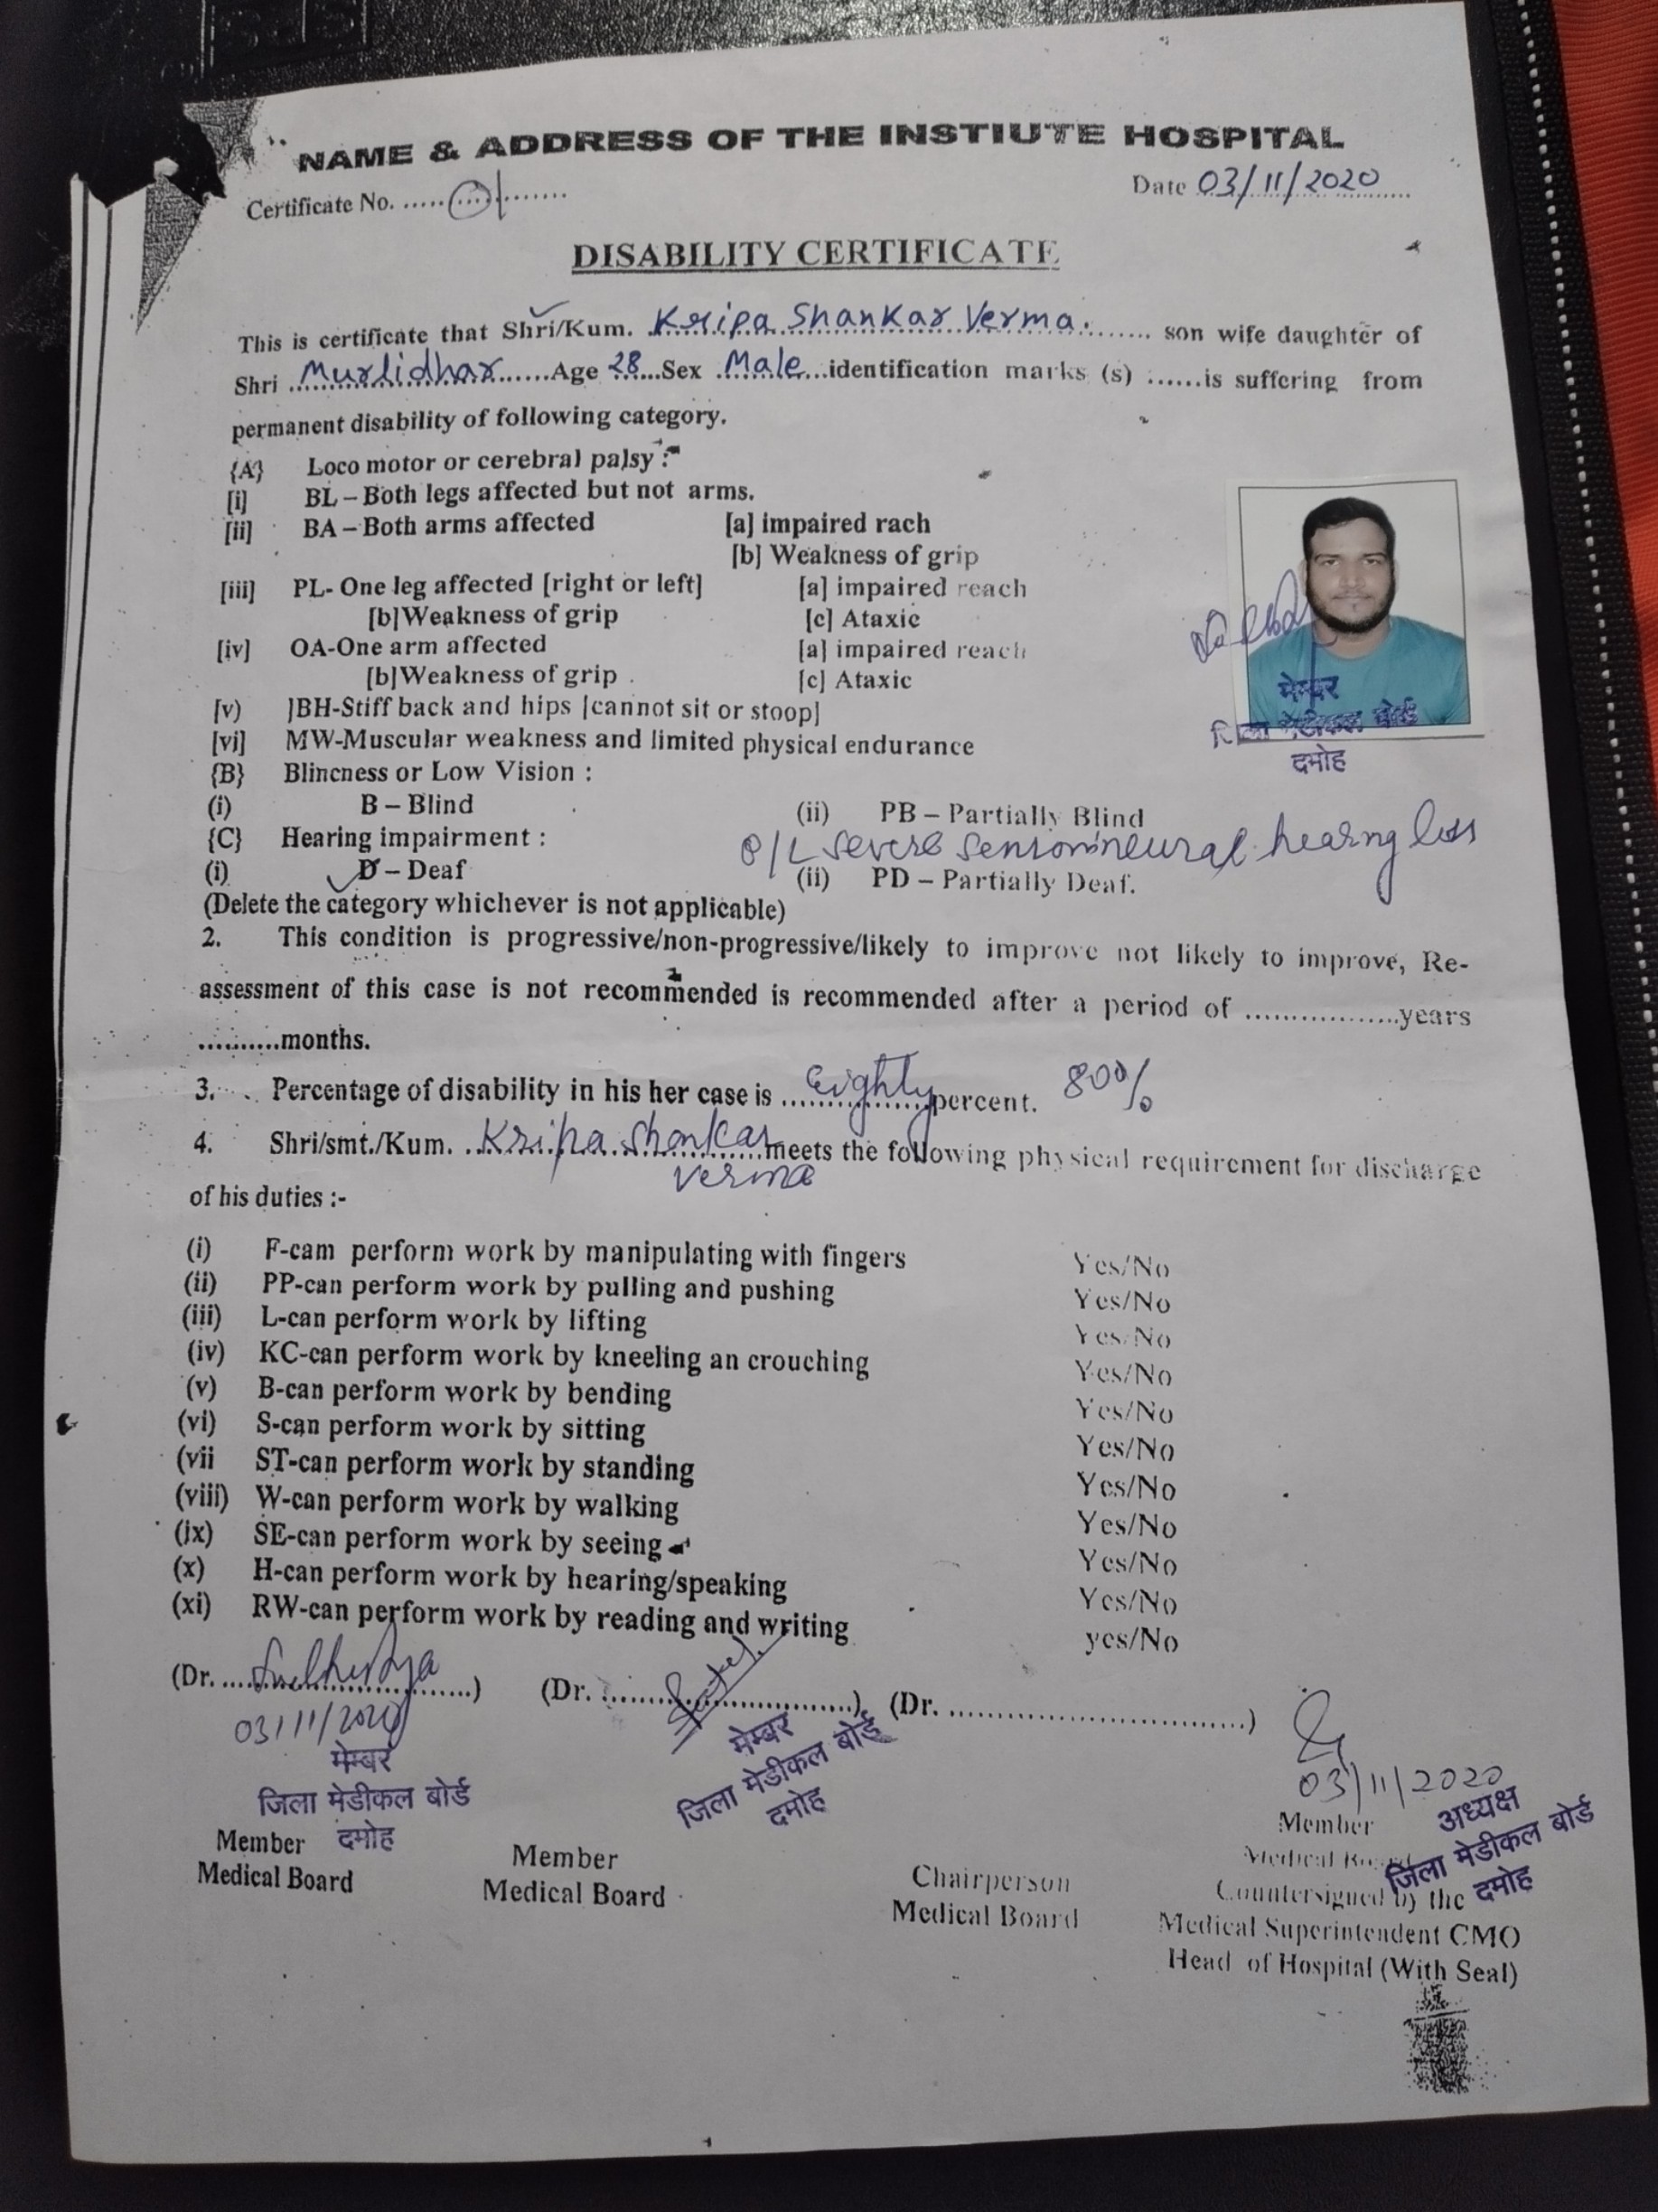 NAME & ADDRESS OF THE INSTIUTE HOSPITAL
Certificate No. ..... 01 .......
Date 03/11/2020
DISABILITY CERTIFICATE
This is certificate that Shri/Kum. Kripa Shankar Verma. ....... son wife daughter of
Shri Murlidhar ......Age 28 ...Sex Male ...identification marks (s) ......is suffering from
permanent disability of following category.
{A} Loco motor or cerebral palsy :-
[i] BL – Both legs affected but not arms.
[ii] BA – Both arms affected [a] impaired rach
[b] Weakness of grip
[iii] PL- One leg affected [right or left] [a] impaired reach
[b]Weakness of grip [c] Ataxic
[iv] OA-One arm affected [a] impaired reach
[b]Weakness of grip [c] Ataxic
[v) ]BH-Stiff back and hips [cannot sit or stoop]
[vi] MW-Muscular weakness and limited physical endurance
मेम्बर
जिला मेडीकल बोर्ड
दमोह
{B} Blincness or Low Vision :
(i) B – Blind (ii) PB – Partially Blind
{C} Hearing impairment : B/L severe sensorineural hearng loss
(i) D – Deaf (ii) PD – Partially Deaf.
(Delete the category whichever is not applicable)
2. This condition is progressive/non-progressive/likely to improve not likely to improve, Re-
assessment of this case is not recommended is recommended after a period of .................years
..........months.
3. Percentage of disability in his her case is Eighty percent. 80%
4. Shri/smt./Kum. Kripa Shankar meets the following physical requirement for discharge
Verma
of his duties :-
(i) F-cam perform work by manipulating with fingers Yes/No
(ii) PP-can perform work by pulling and pushing Yes/No
(iii) L-can perform work by lifting Yes/No
(iv) KC-can perform work by kneeling an crouching Yes/No
(v) B-can perform work by bending Yes/No
(vi) S-can perform work by sitting Yes/No
(vii ST-can perform work by standing Yes/No
(viii) W-can perform work by walking Yes/No
(ix) SE-can perform work by seeing Yes/No
(x) H-can perform work by hearing/speaking Yes/No
(xi) RW-can perform work by reading and writing yes/No
(Dr. ..............................) (Dr. ..............................) (Dr. ..............................)
03/11/2020
मेम्बर
जिला मेडीकल बोर्ड
दमोह
Member
Medical Board
मेम्बर
जिला मेडीकल बोर्ड
दमोह
Member
Medical Board
Chairperson
Medical Board
03/11/2020
अध्यक्ष
जिला मेडीकल बोर्ड
दमोह
Member
Medical Board
Countersigned by the
Medical Superintendent CMO
Head of Hospital (With Seal)